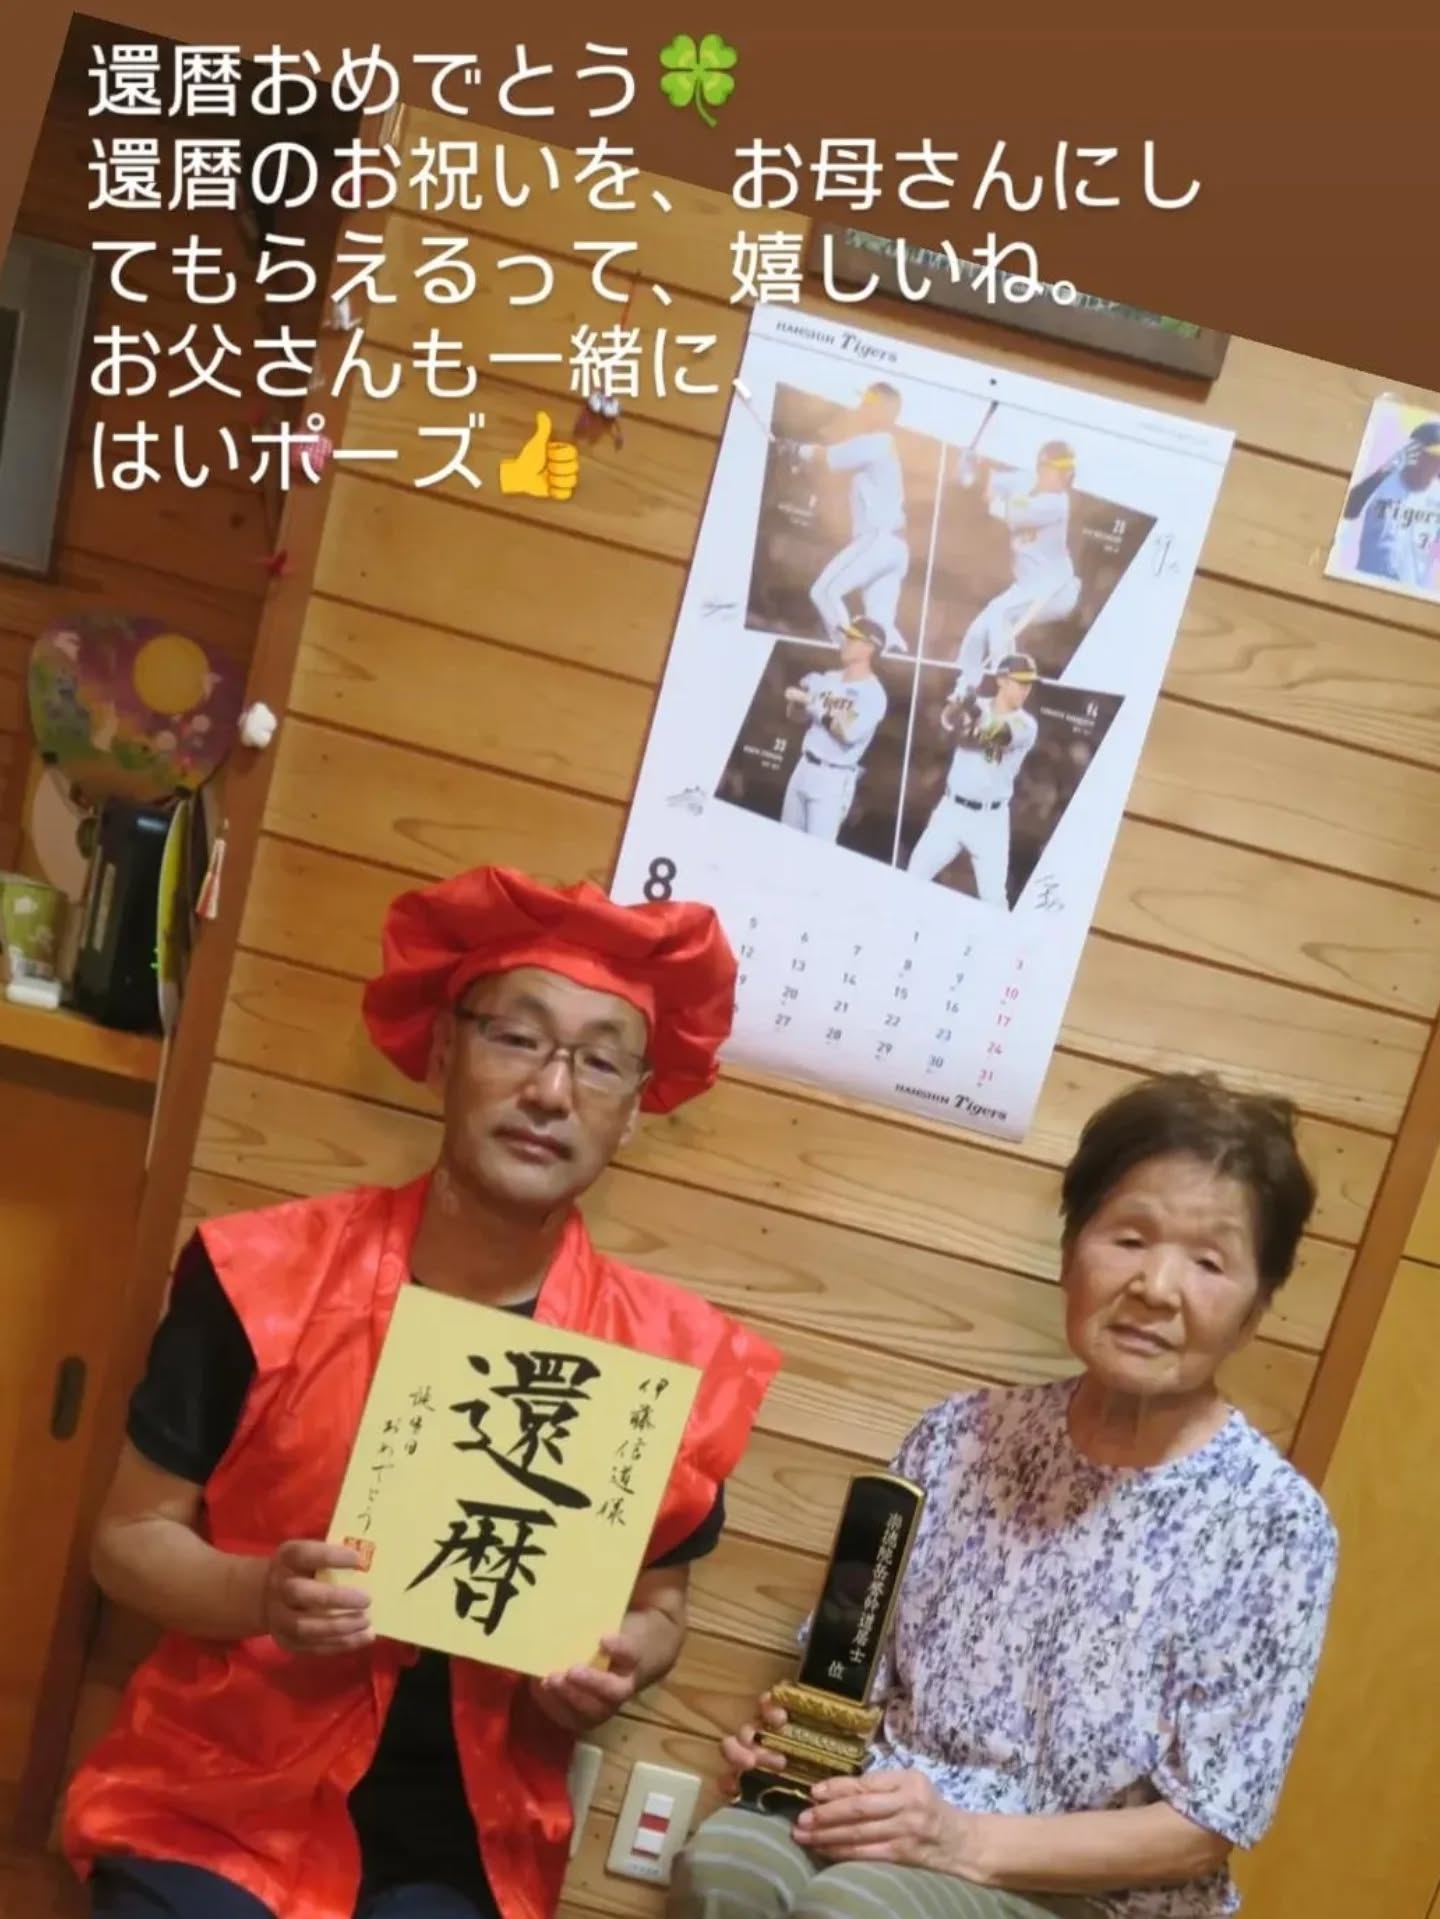 還暦おめでとう🍀
還暦のお祝いを、お母さんにし
てもらえるって、嬉しいね。
お父さんも一緒に、
はいポーズ👍
HANSHIN Tigers
Tigers
8
1 2 3
5 6 7 8 9 10
12 13 14 15 16 17
20 21 22 23 24
27 28 29 30 31
HANSHIN Tigers
伊藤信道様
還暦
誕生日
おめでとう